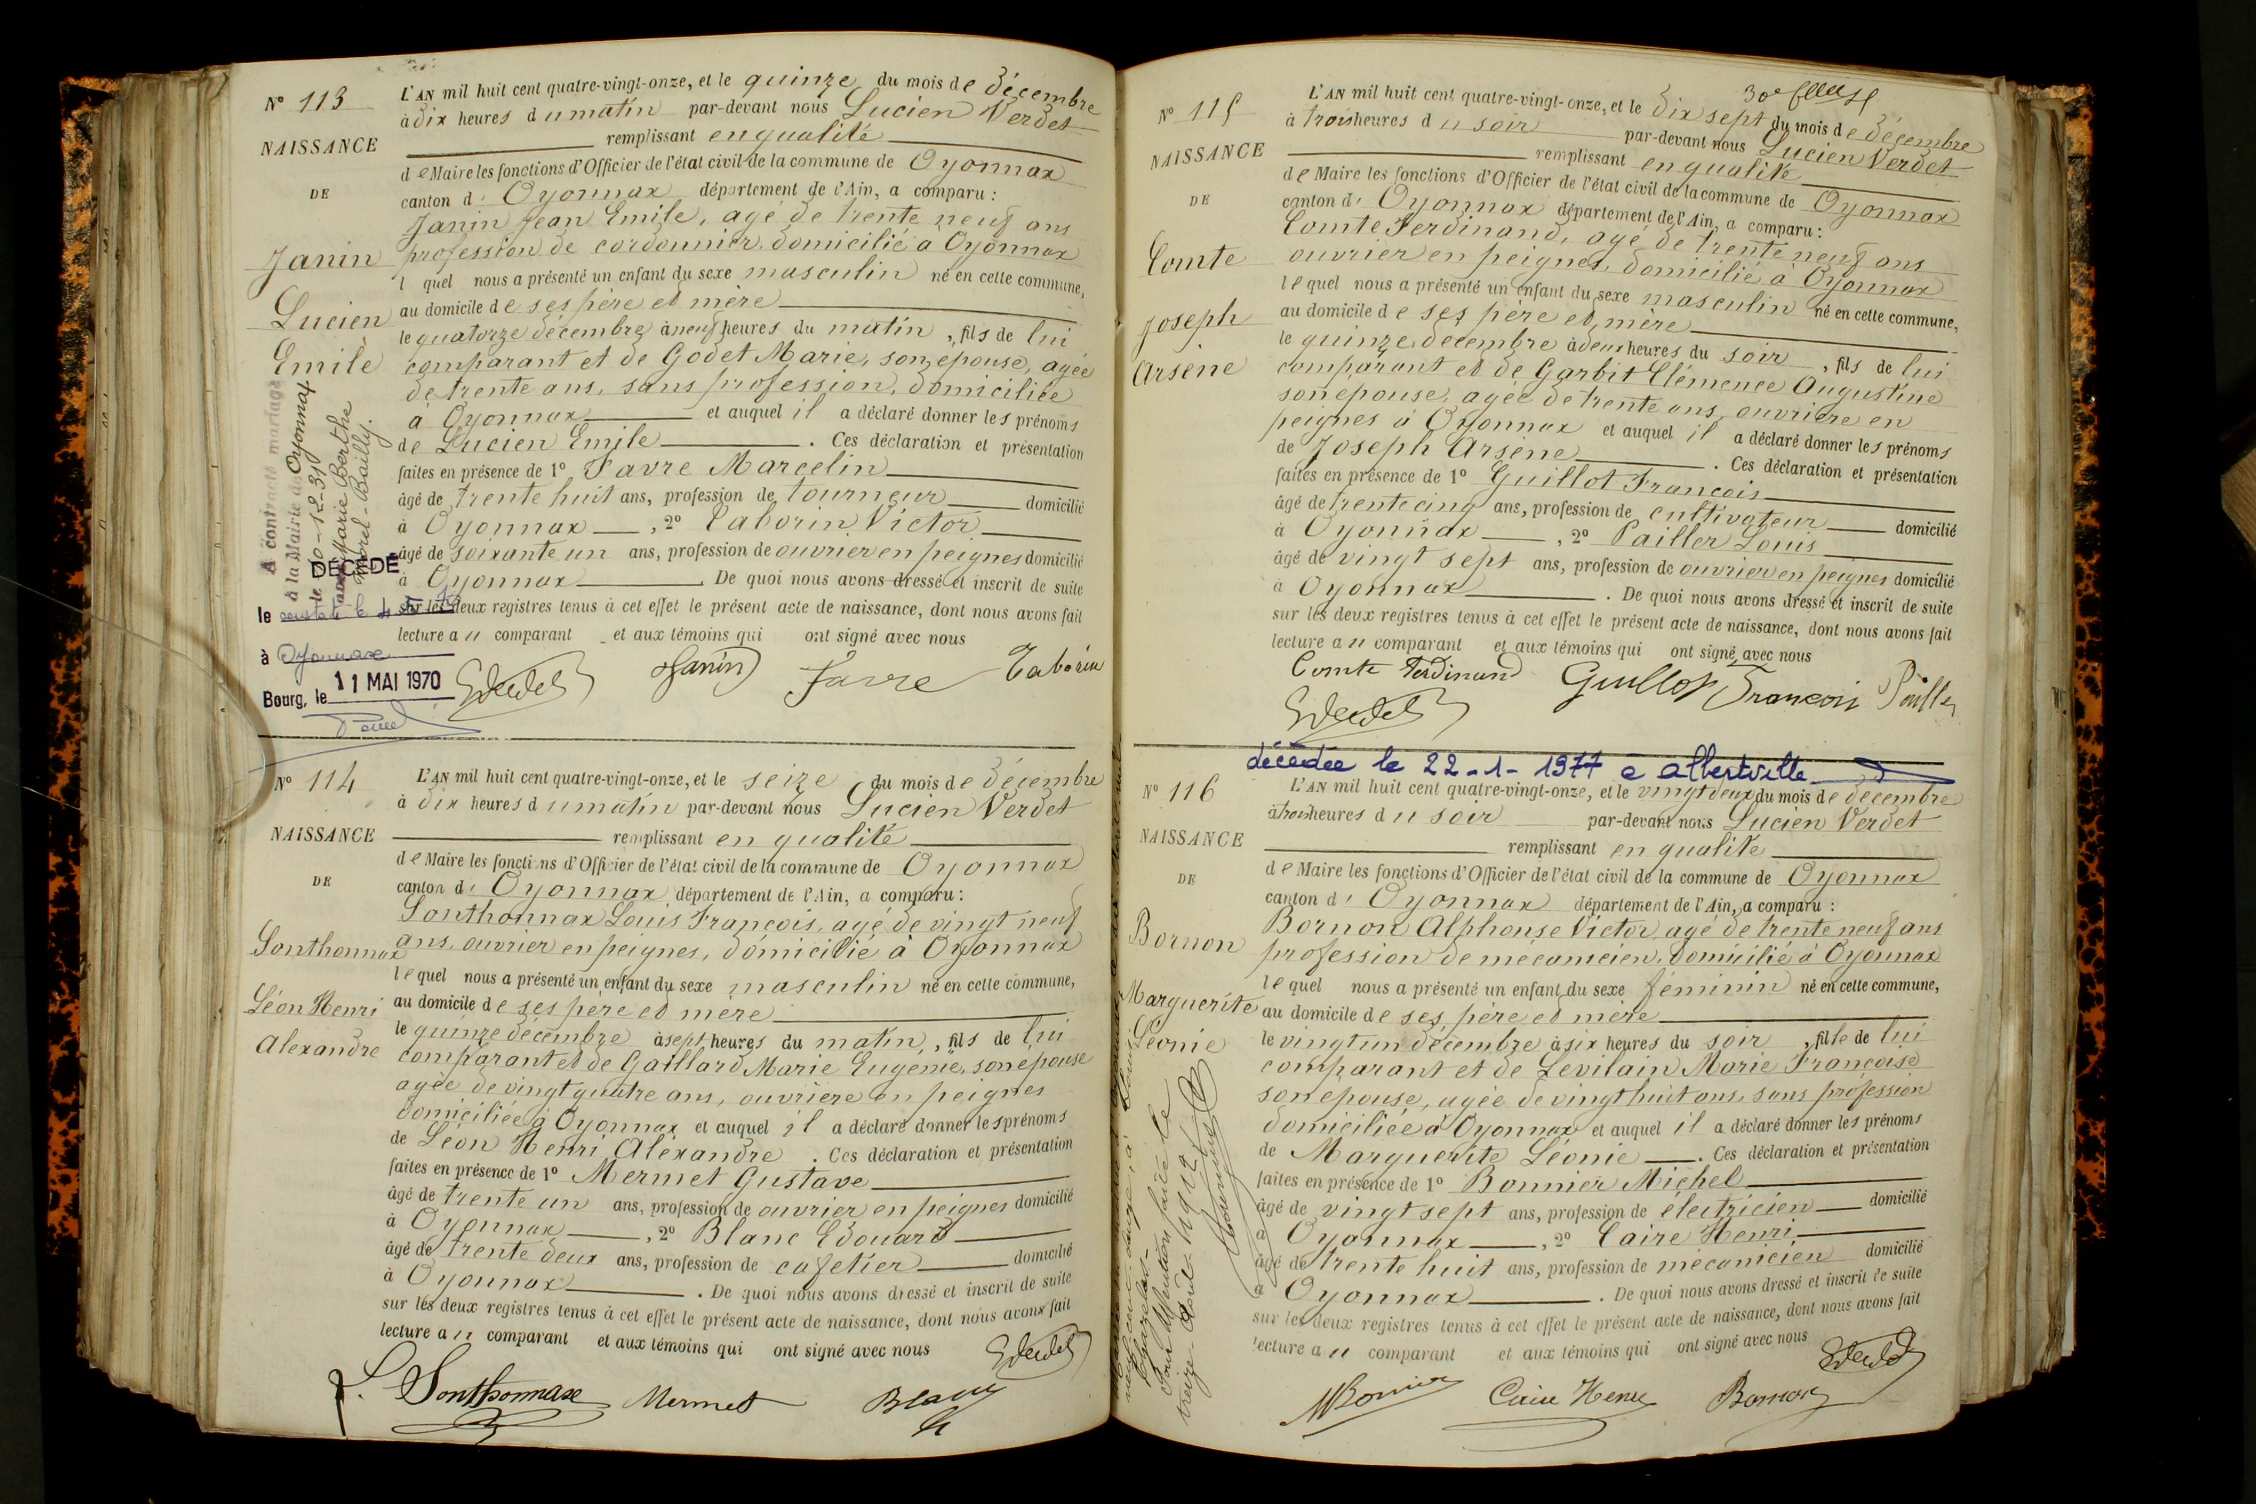 N° 113
NAISSANCE
DE
Janin
Lucien
Emile
A contracté mariage
à la Mairie de Oyonnax
le 20-12-31
avec Marie Berthe
Morel-Bailly.
DÉCÉDÉ
le constaté le 4
à Oyonnax
Bourg, le 11 MAI 1970
L'AN mil huit cent quatre-vingt-onze, et le quinze du mois de décembre
à dix heures du matin par-devant nous Lucien Verdet
remplissant en qualité
de Maire les fonctions d'Officier de l'état civil de la commune de Oyonnax
canton d' Oyonnax département de l'Ain, a comparu :
Janin Jean Emile, agé de trente neuf ans
profession de cordonnier, domicilié à Oyonnax
l quel nous a présenté un enfant du sexe masculin né en cette commune,
au domicile de ses père et mère
le quatorze décembre à neuf heures du matin, fils de lui
comparant et de Godet Marie, son épouse, agée
de trente ans, sans profession, domiciliée
à Oyonnax et auquel il a déclaré donner les prénoms
de Lucien Emile. Ces déclaration et présentation
faites en présence de 1° Favre Marcelin
âgé de trente huit ans, profession de tourneur domicilié
à Oyonnax, 2° Taborin Victor
âgé de soixante un ans, profession de ouvrier en peignes domicilié
à Oyonnax. De quoi nous avons dressé et inscrit de suite
sur les deux registres tenus à cet effet le présent acte de naissance, dont nous avons fait
lecture au comparant et aux témoins qui ont signé avec nous
Janin Favre Taborin
N° 114
NAISSANCE
DE
Sonthonnax
Léon Henri
Alexandre
L'AN mil huit cent quatre-vingt-onze, et le seize du mois de décembre
à dix heures du matin par-devant nous Lucien Verdet
remplissant en qualité
de Maire les fonctions d'Officier de l'état civil de la commune de Oyonnax
canton d' Oyonnax département de l'Ain, a comparu :
Sonthonnax Louis François, agé de vingt neuf
ans, ouvrier en peignes, domicilié à Oyonnax
lequel nous a présenté un enfant du sexe masculin né en cette commune,
au domicile de ses père et mère
le quinze décembre à sept heures du matin, fils de lui
comparant et de Gaillard Marie Eugénie, son épouse
agée de vingt quatre ans, ouvrière en peignes
domiciliée à Oyonnax et auquel il a déclaré donner les prénoms
de Léon Henri Alexandre. Ces déclaration et présentation
faites en présence de 1° Mermet Gustave
âgé de trente un ans, profession de ouvrier en peignes domicilié
à Oyonnax, 2° Blanc Edouard
âgé de trente deux ans, profession de cafetier domicilié
à Oyonnax. De quoi nous avons dressé et inscrit de suite
sur les deux registres tenus à cet effet le présent acte de naissance, dont nous avons fait
lecture au comparant et aux témoins qui ont signé avec nous
L. Sonthonnax Mermet Blanc
30e
N° 115
NAISSANCE
DE
Comte
Joseph
Arsène
L'AN mil huit cent quatre-vingt-onze, et le dix sept du mois de décembre
à trois heures du soir par-devant nous Lucien Verdet
remplissant en qualité
de Maire les fonctions d'Officier de l'état civil de la commune de Oyonnax
canton d' Oyonnax département de l'Ain, a comparu :
Comte Ferdinand, agé de trente neuf ans
ouvrier en peignes, domicilié à Oyonnax
lequel nous a présenté un enfant du sexe masculin né en cette commune,
au domicile de ses père et mère
le quinze décembre à deux heures du soir, fils de lui
comparant et de Garbit Clémence Augustine
son épouse, agée de trente ans, ouvrière en
peignes à Oyonnax et auquel il a déclaré donner les prénoms
de Joseph Arsène. Ces déclaration et présentation
faites en présence de 1° Guillot François
âgé de trente cinq ans, profession de cultivateur domicilié
à Oyonnax, 2° Pailler Louis
âgé de vingt sept ans, profession de ouvrier en peignes domicilié
à Oyonnax. De quoi nous avons dressé et inscrit de suite
sur les deux registres tenus à cet effet le présent acte de naissance, dont nous avons fait
lecture au comparant et aux témoins qui ont signé avec nous
Comte Ferdinand Guillot François Pailler
décédée le 22-1-1977 à Albertville
N° 116
NAISSANCE
DE
Bornon
Marguerite
Léonie
L'AN mil huit cent quatre-vingt-onze, et le vingt deux du mois de décembre
à trois heures du soir par-devant nous Lucien Verdet
remplissant en qualité
de Maire les fonctions d'Officier de l'état civil de la commune de Oyonnax
canton d' Oyonnax département de l'Ain, a comparu :
Bornon Alphonse Victor, agé de trente neuf ans
profession de mécanicien, domicilié à Oyonnax
lequel nous a présenté un enfant du sexe féminin né en cette commune,
au domicile de ses père et mère
le vingt un décembre à six heures du soir, fille de lui
comparant et de Levilain Marie Françoise
son épouse, agée de vingt huit ans, sans profession
domiciliée à Oyonnax et auquel il a déclaré donner les prénoms
de Marguerite Léonie. Ces déclaration et présentation
faites en présence de 1° Bonnier Michel
âgé de vingt sept ans, profession de électricien domicilié
à Oyonnax, 2° Caire Henri
âgé de trente huit ans, profession de mécanicien domicilié
à Oyonnax. De quoi nous avons dressé et inscrit de suite
sur les deux registres tenus à cet effet le présent acte de naissance, dont nous avons fait
lecture au comparant et aux témoins qui ont signé avec nous
MBonnier Caire Henri Bornon